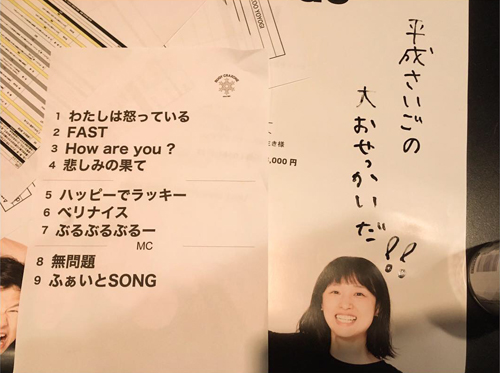 1 わたしは怒っている
2 FAST
3 How are you ?
4 悲しみの果て
5 ハッピーでラッキー
6 ベリナイス
7 ぶるぶるぶるー
MC
8 無問題
9 ふぁいとSONG
平成さいごの
大おせっかいだ!!
,000 円